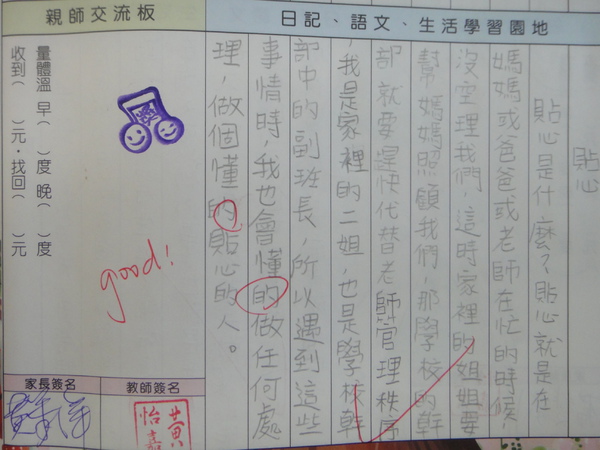 日記、語文、生活學習園地
貼心
貼心是什麼?貼心就是在
媽媽或爸爸或老師在忙的時候,
沒空理我們,這時家裡的姐姐要
幫媽媽照顧我們,那學校的幹
部就要趕快代替老師管理秩序
,我是家裡的二姐,也是學校幹
部中的副班長,所以遇到這些
事情時,我也會懂的做任何處
理,做個懂的貼心的人。
親師交流板
量體溫 早( )度 晚( )度
收到( )元·找回( )元
good!
教師簽名
黃怡嘉
家長簽名